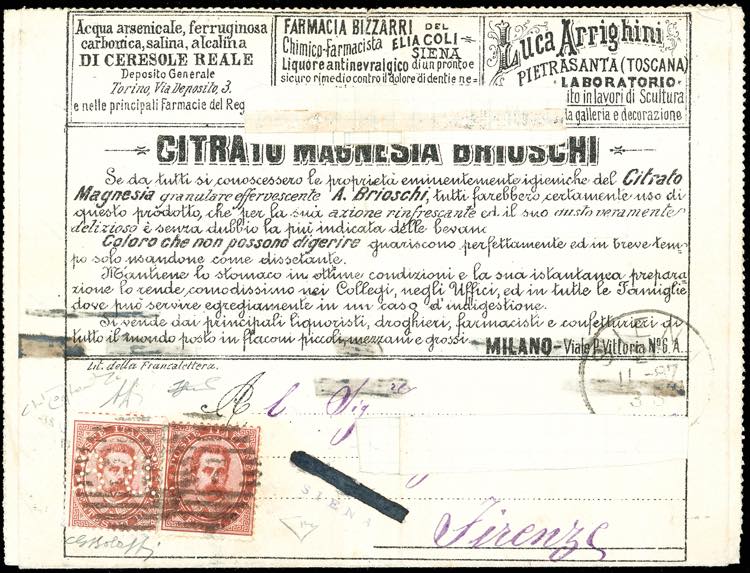 Acqua arsenicale, ferruginosa
carbonica, salina, alcalina
DI CERESOLE REALE
Deposito Generale
Torino, Via Deposito, 3.
e nelle principali Farmacie del Reg
FARMACIA BIZZARRI DEL
Chimico-Farmacista ELIA COLI
SIENA
Liquore antinevralgico di un pronto e
sicuro rimedio contro il dolore di denti e ne-
Luca Arrighini
PIETRASANTA (TOSCANA)
LABORATORIO
ito in lavori di Scultura
ta galleria e decorazione
CITRATO MAGNESIA BRIOSCHI
Se da tutti si conoscessero le proprietà eminentemente igieniche del Citrato
Magnesia granulare effervescente A. Brioschi, tutti farebbero, certamente uso di
questo prodotto, che per la sua azione rinfrescante ed il suo gusto veramente
delizioso è senza dubbio la più indicata delle bevan:
Coloro che non possono digerire guariscono perfettamente ed in breve tem-
po solo usandone come dissetante.
Mantiene lo stomaco in ottime condizioni e la sua istantanea prepara
zione lo rende, comodissimo nei Collegi, negli Uffici, ed in tutte le Famiglie
dove può servire egregiamente in un caso d'indigestione.
Si vende dai principali liquoristi, droghieri, farmacisti e confetturieri di
tutto il mondo posto in flaconi piccoli, mezzani e grossi. MILANO - Viale P. Vittoria N.º 6. A.
Lit. della Francalettera.
11 - 87
Al Sig.
POSTE ITALIANE
SIENA
Firenze